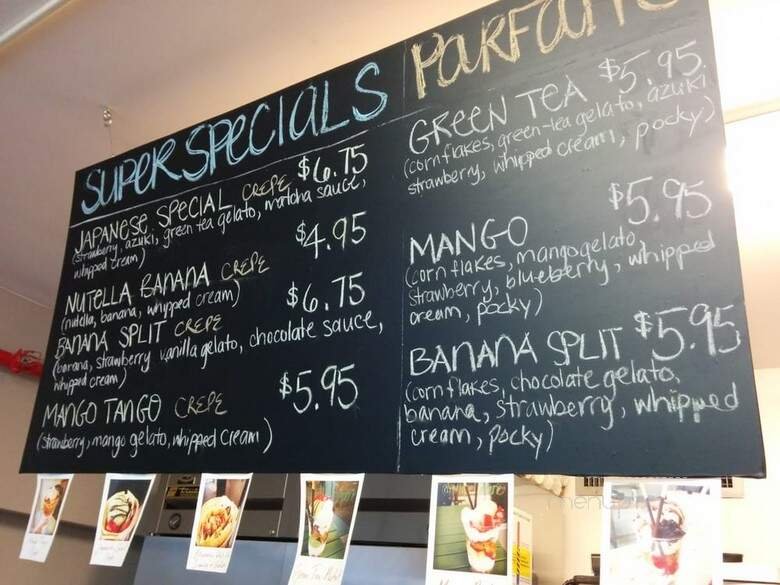 SUPER SPECIALS
JAPANESE SPECIAL CREPE $6.75
(strawberry, azuki, green tea gelato, matcha sauce,
whipped cream)
NUTELLA BANANA CREPE $4.95
(nutella, banana, whipped cream)
BANANA SPLIT CREPE $6.75
(banana, strawberry vanilla gelato, chocolate sauce,
whipped cream)
MANGO TANGO CREPE $5.95
(strawberry, mango gelato, whipped cream)
PARFAITS
GREEN TEA $5.95
(cornflakes, green-tea gelato, azuki
strawberry, whipped cream, pocky)
MANGO $5.95
(corn flakes, mango gelato,
strawberry, blueberry, whipped
cream, pocky)
BANANA SPLIT $5.95
(corn flakes, chocolate gelato,
banana, strawberry, whipped
cream, pocky)